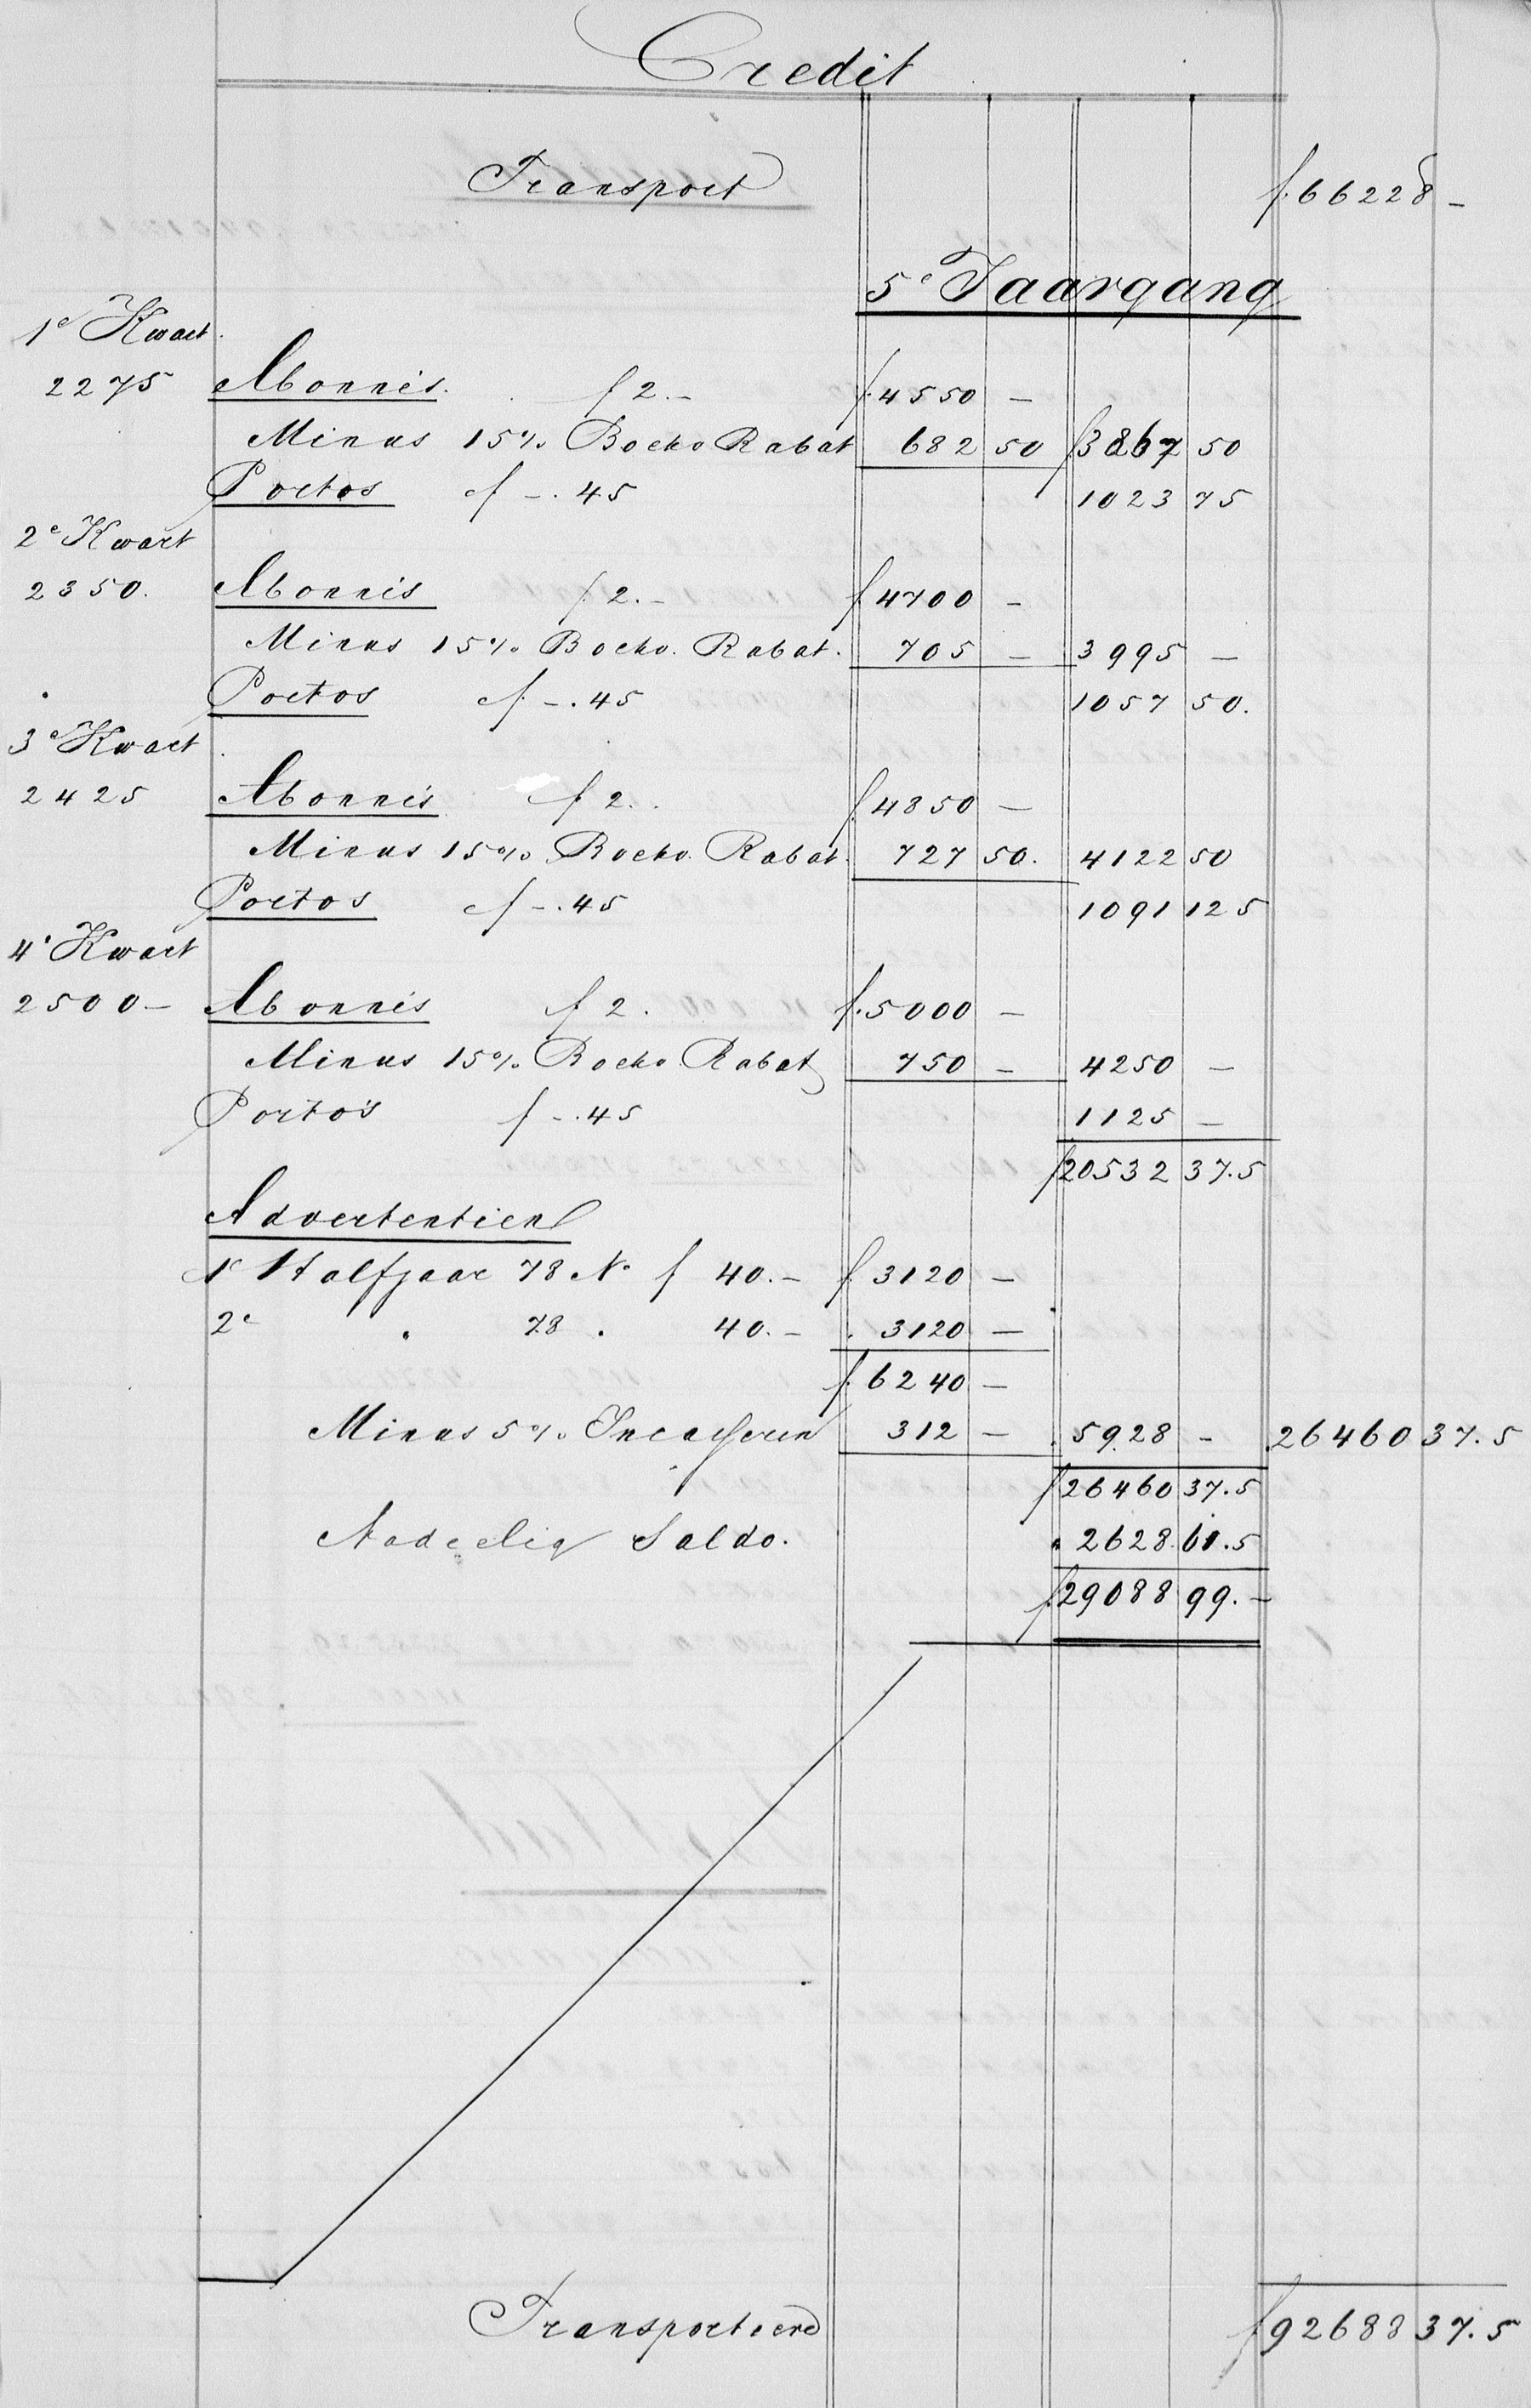 Credit
Transport f. 66228 –
5e Jaargang
1e Kwart.
2275 Abonnés. f 2.– f. 4550 –
Minus 15% Boekh Rabat 682 50 f 3867 50
Portos f –.45 1023 75
2e Kwart
2350. Abonnés f 2.– f. 4700 –
Minus 15% Boekh. Rabat. 705 – 3995 –
Portos f –.45 1057 50.
3e Kwart
2425 Abonnés f 2.. f. 4850 –
Minus 15% Boekh. Rabat. 727 50. 4122 50
Portos f –.45 1091 12 5
4e Kwart
2500 – Abonnés f 2. f. 5000 –
Minus 15% Boekh Rabat 750 – 4250 –
Porto's f –.45 1125 –
f 20532 37.5
Advertentien
1e Halfjaar 78 No f 40.– f. 3120 –
2e " 78 " 40.– " 3120 –
f. 6240 –
Minus 5% Incasseren 312 – . 5928 – 26460 37.5
f 26460 37.5
Nadeelig Saldo. " 2628 61.5
f. 29088 99.–
Transporteere f 92688 37.5